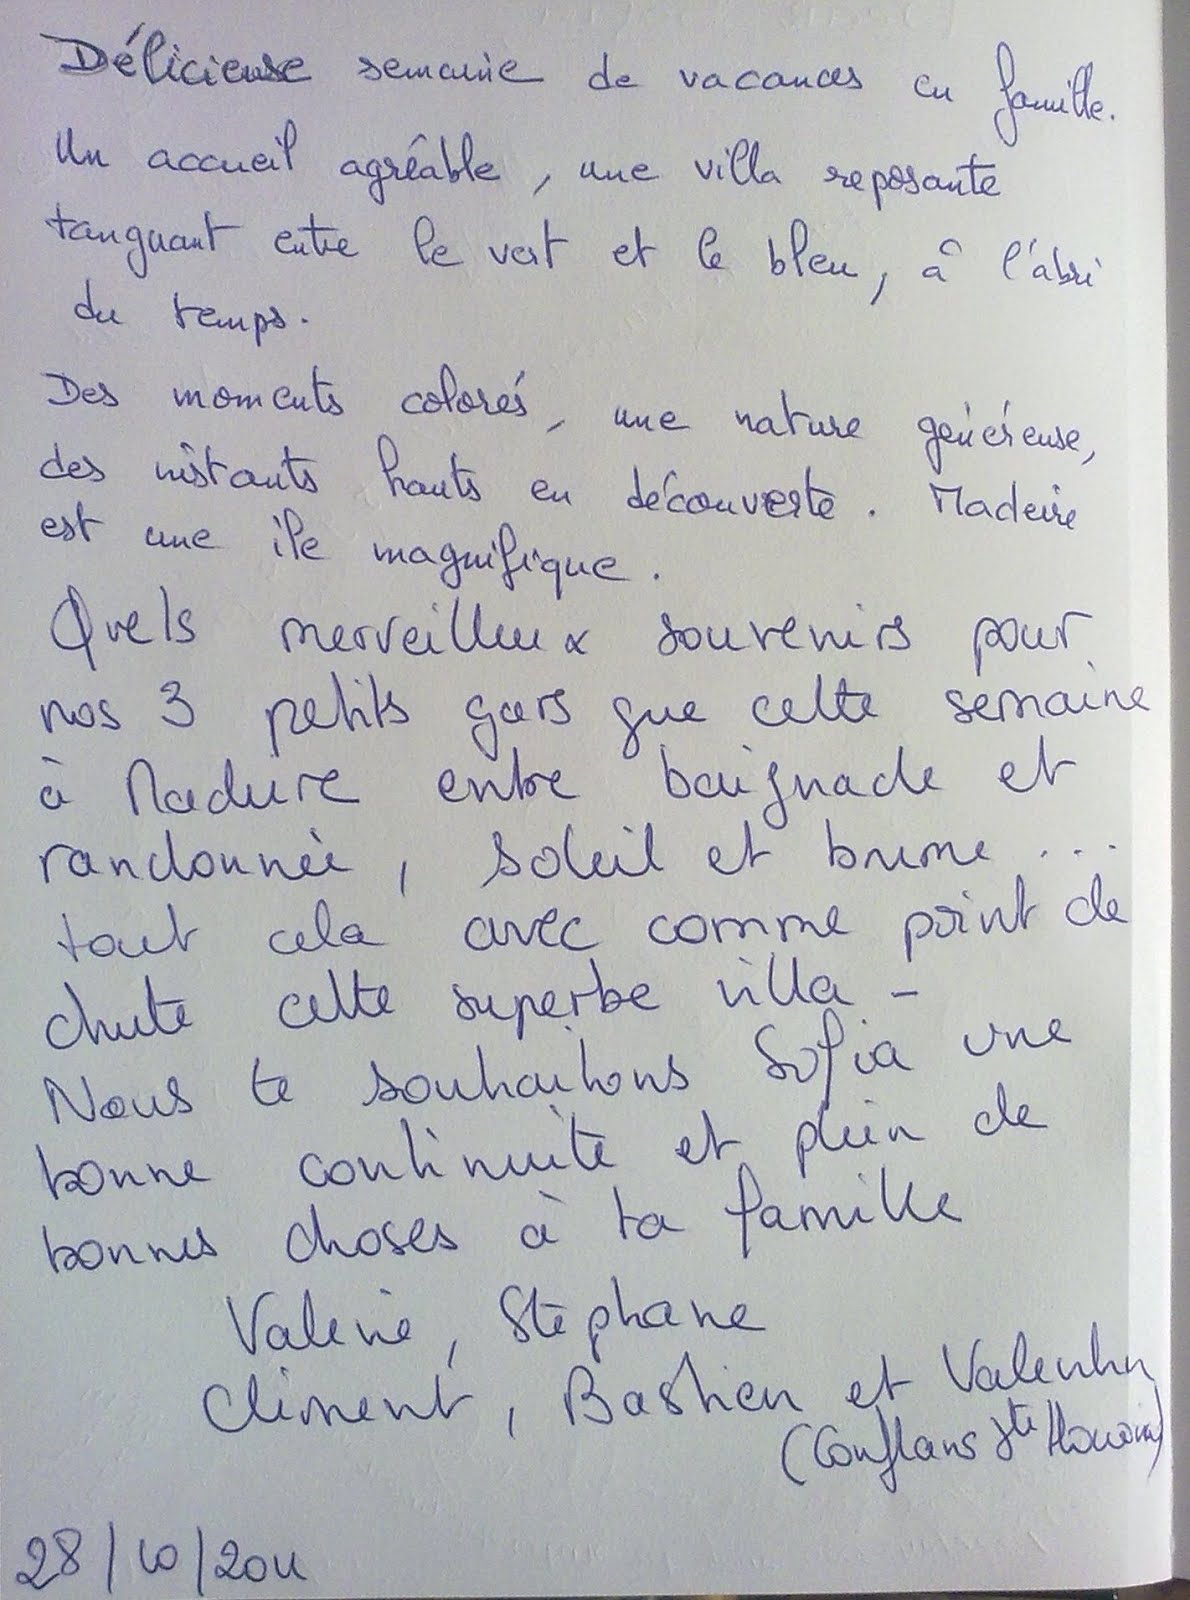 Délicieuse semaine de vacances en famille.
Un accueil agréable, une villa reposante
tanguant entre le vert et le bleu, à l'abri
du temps.
Des moments colorés, une nature généreuse,
des instants hauts en découverte. Madeire
est une île magnifique.
Quels merveilleux souvenirs pour
nos 3 petits gars que cette semaine
à Madeire entre baignade et
randonnée, soleil et brume ...
tout cela avec comme point de
chute cette superbe villa -
Nous te souhaitons Sofia une
bonne continuité et plein de
bonnes choses à ta famille
Valérie, Stéphane
Clément, Bastien et Valentin
(Conflans Ste Honorine)
28/10/2011